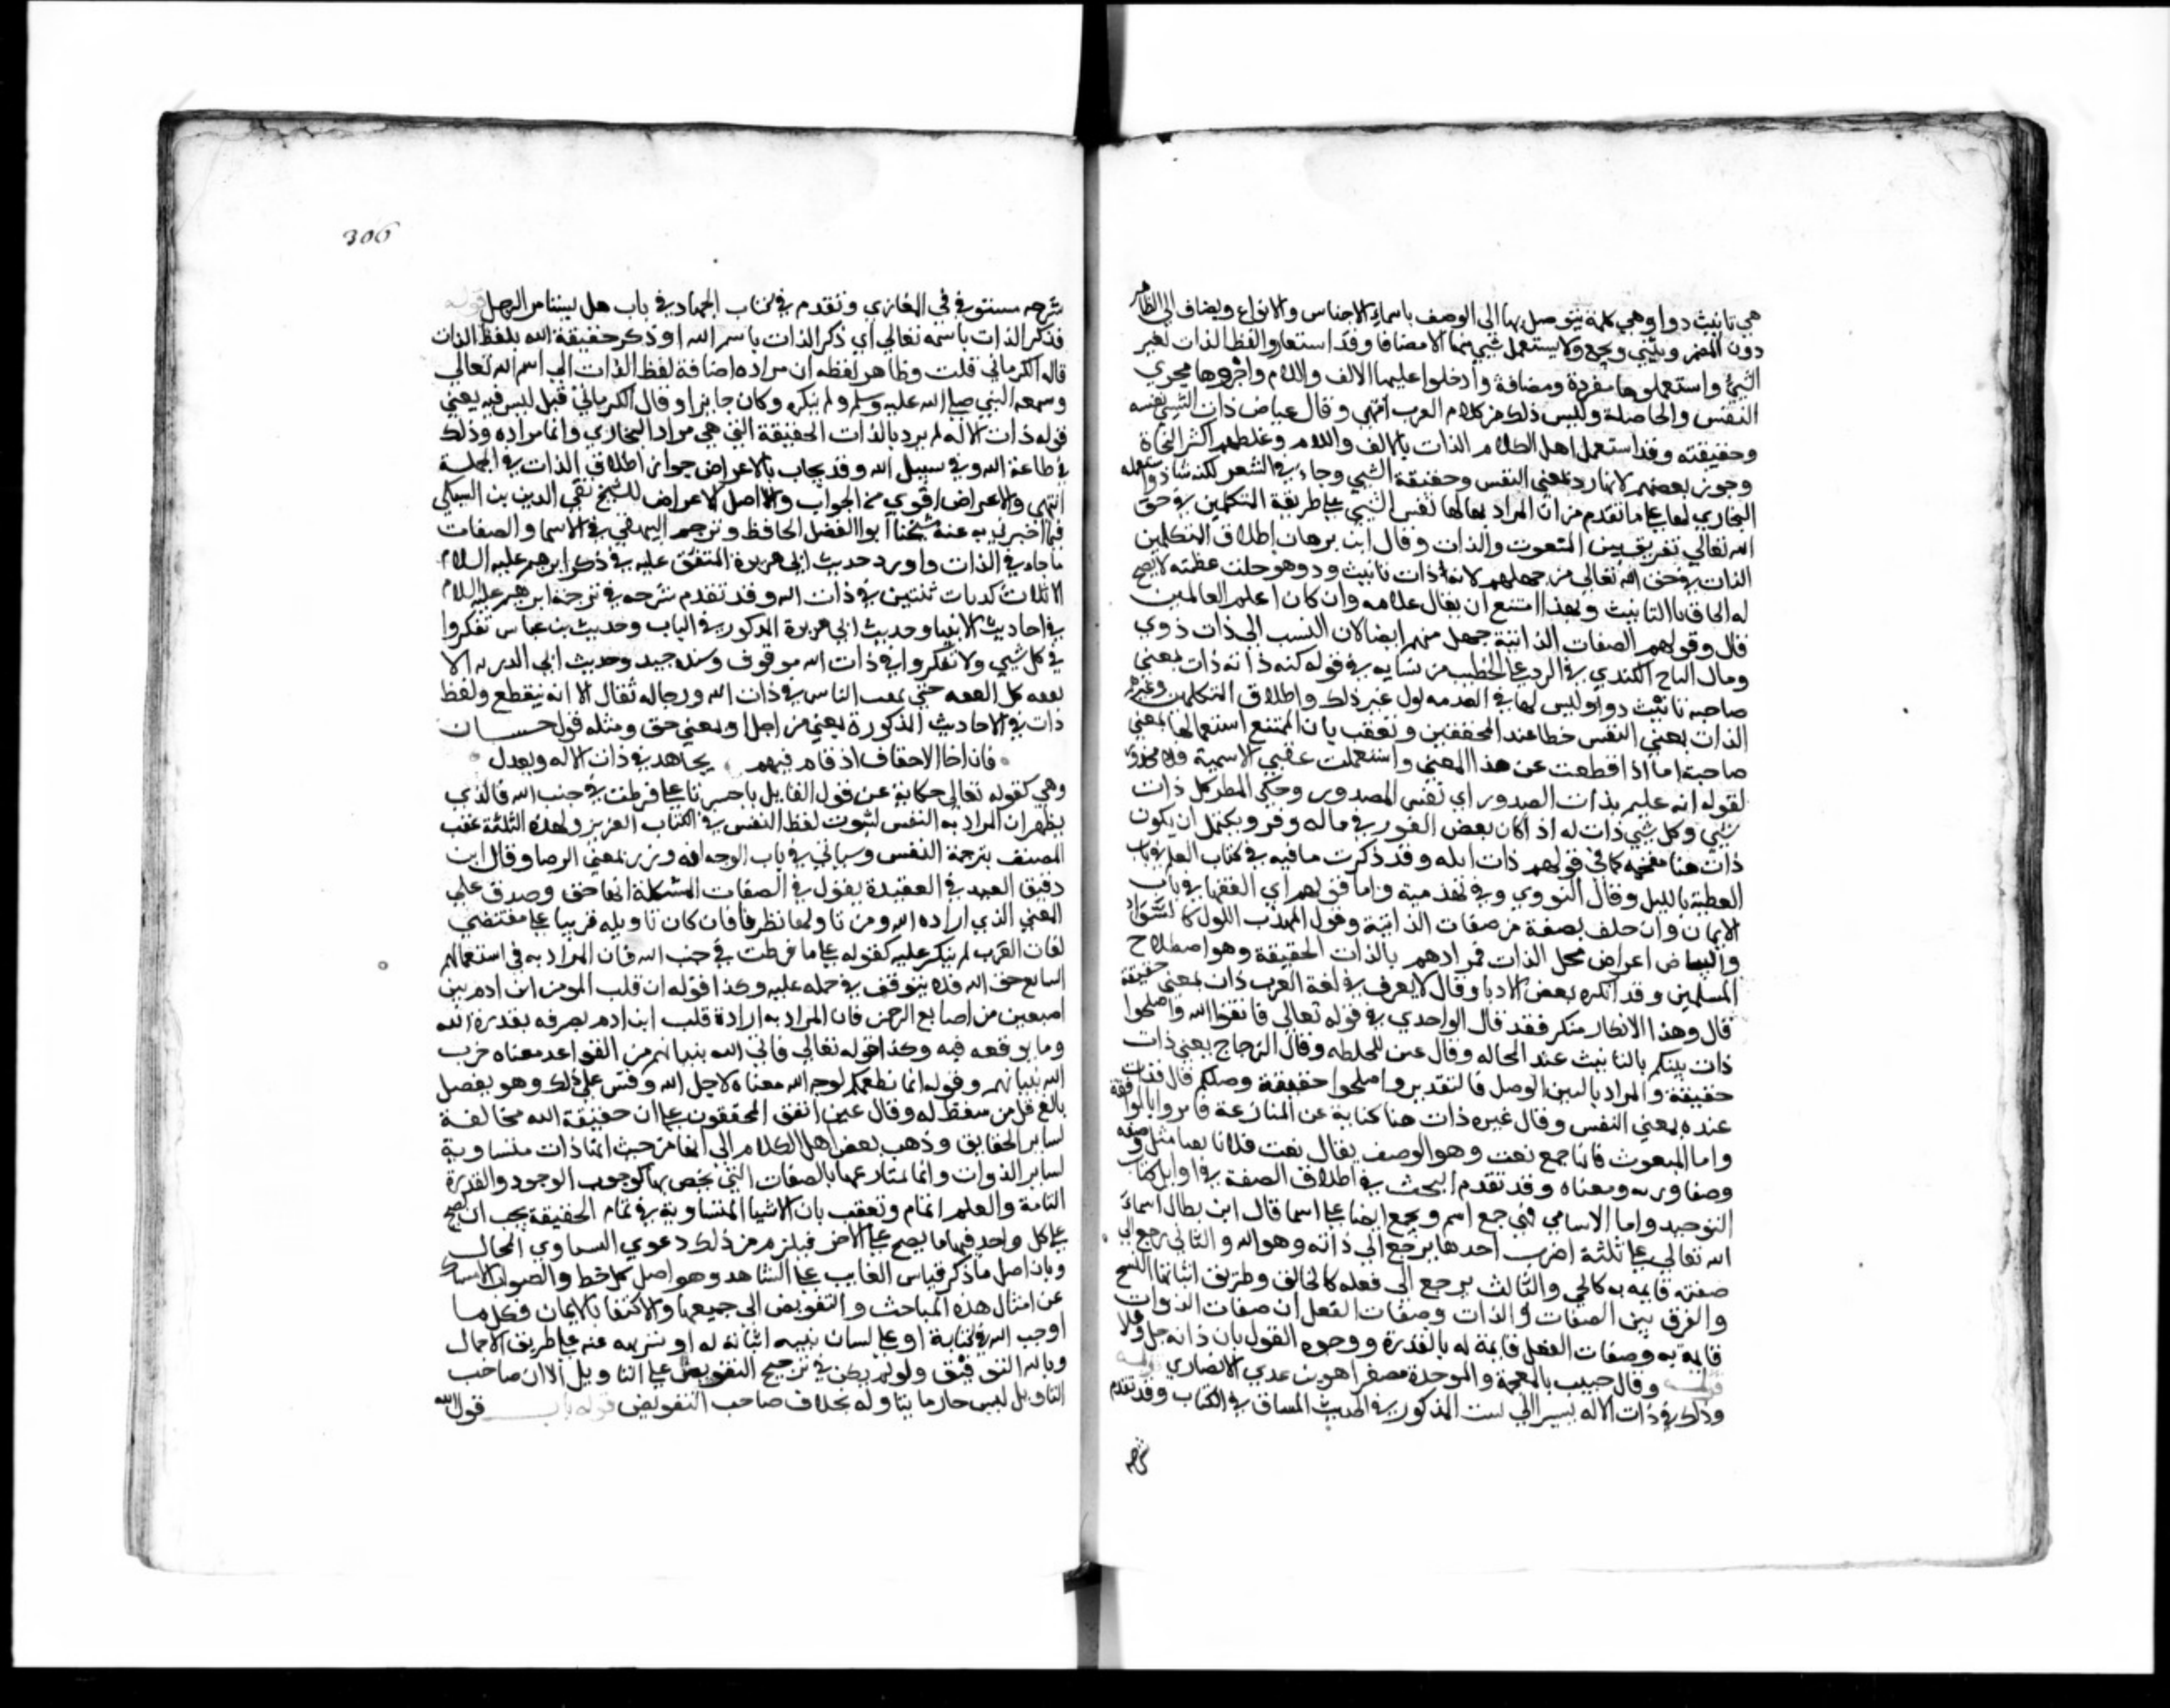 هي تانيث ذو او هي كلمة يتوصل بها الى الوصف باسماء الاجناس والانواع ويضاف الى الظاهر
دون المضمر ويثني ويجمع ولا يستعمل شي منها الا مضافا وقد استعاروا لفظ الذات لعين
الشي واستعملوها مفردة ومضافة وادخلوا عليها الالف واللام واجروها مجري
النفس والخاصة وليس ذلك من كلام العرب انتهي وقال عياض ذات الشي نفسه
وحقيقته وقد استعمل اهل الكلام الذات بالالف واللام وغلطهم اكثر النحاة
وجوزه بعضهم لانها ترد بمعني النفس وحقيقة الشي وجاء في الشعر لكنه شاذ واستعمله
البخاري لها علي ما تقدم من ان المراد بها نفس الشي علي طريقة المتكلمين في حق
الله تعالي تفريق بين النعوت والذات وقال ابن برهان اطلاق المتكلمين
الذات في حق الله تعالي من جهلهم لان ذات تانيث ذو وهو جلت عظمته لا يصح
له الحاق تا التانيث ولهذا امتنع ان يقال علامه وان كان اعلم العالمين
قال وقولهم الصفات الذاتية جهل منهم ايضا لان النسب الي ذات ذوي
وقال التاج الكندي في الرد علي الخطيب بن نباته في قوله كنه ذاته ذات بمعني
صاحبة تانيث ذو وليس لها في اللغة مدلول غير ذلك واطلاق المتكلمين وغيرهم
الذات بمعني النفس خطا عند المحققين وتعقب بان الممتنع استعمالها بمعني
صاحبة اما اذا قطعت عن هذا المعني واستعملت بمعني الاسمية فلا محذور
لقوله انه عليم بذات الصدور اي نفس الصدور وحكي المطرزي كل ذات
شي وكل شي ذات
ذات هنا مقحمة كما في قولهم ذات ليلة وقد ذكرت ما فيه في كتاب العلم في باب
العظة بالليل وقال النووي في تهذيبه واما قولهم اي الفقها في باب
الايمان وان حلف بصفة من صفات الذاتية وقول المهذب اللون كالسواد
والبياض اعراض تحل الذات فمرادهم بالذات الحقيقة وهو اصطلاح
المتكلمين وقد انكره بعض الادبا وقال لا يعرف في لغة العرب ذات بمعني حقيقة
قال وهذا الانكار منكر فقد قال الواحدي في قوله تعالي فاتقوا الله واصلحوا
ذات بينكم بالتانيث عند الحاله وقال الزجاج بمعني ذات
حقيقة والمراد بالبين الوصل فالتقدير واصلحوا حقيقة وصلكم قال فذات
عنده بمعني النفس وقال غيره ذات هنا كناية عن المنازعة فامروا بالموافقة
واما النعوت فانها جمع نعت وهو الوصف يقال نعت فلانا نعتا مثل وصفه
وصفا وزنه ومعناه وقد تقدم البحث في اطلاق الصفة في اوايل كتاب
التوحيد واما الاسامي فهي جمع اسم ويجمع ايضا علي اسما قال ابن بطال اسماء
الله تعالي علي ثلثة اضرب احدها يرجع الي ذاته وهو الله والثاني يرجع الي
صفة قايمة به كالحي والثالث يرجع الى فعله كالخالق وطريق اثباتها السمع
والفرق بين الصفات والذات وصفات الفعل ان صفات الذوات
قايمة به وصفات الفعل قايمة له بالقدرة ووجود القول بان ذاته جل وعلا
قوله وقال خبيب بالمعجمة والموحدة مصغرا هو بن عدي الانصاري قوله
وذلك في ذات الاله يشير الي البيت المذكور في الحديث المساق في الكتاب وقد تقدم
شرحه
306
شرحه مستوفي في المغازي وتقدم في كتاب الجهاد في باب هل يستاسر الرجل قوله
فذكر الذات باسمه تعالي اي ذكر الذات باسم الله او ذكر حقيقة الله بلفظ الذات
قاله الكرماني قلت وظاهر لفظه ان مراده اضافة لفظ الذات الي اسم الله تعالي
وسمعه النبي صلي الله عليه وسلم ولم ينكره وكان جايزا وقال الكرماني قيل ليس فيه يعني
قوله ذات الاله لم يرد بالذات الحقيقة التي هي مراد البخاري وانما مراده وذلك
في طاعة الله وفي سبيل الله وقد يجاب بالاعراض جواز اطلاق الذات في الجملة
انتهي والاعراض اقوي من الجواب والاصل الاعراض للشيخ تقي الدين بن السبكي
فيما اخبرني به عنه شيخنا ابو الفضل الحافظ وترجم البيهقي في الاسما والصفات
ما جاء في الذات واورد حديث ابي هريرة المتفق عليه في ذكر ابرهيم عليه السلام
الا ثلاث كذبات ثنتين في ذات الله وقد تقدم شرحه في ترجمة ابرهيم عليه السلام
في احاديث الانبيا وحديث ابي هريرة المذكور في الباب وحديث بن عباس تفكروا
في كل شي ولا تفكروا في ذات الله موقوف وسنده جيد وحديث ابي الدرداء لا
تفقه كل الفقه حتي تمقت الناس في ذات الله ورجاله ثقات الا انه منقطع ولفظ
ذات في الاحاديث المذكورة بمعني من اجل او بمعني حق ومثله قول حسان
فان اخا الاحقاف اذ قام فيهم يجاهد في ذات الاله ويعدل
وهي كقوله تعالي حكاية عن قول القايل يا حسرتا علي ما فرطت في جنب الله فالذي
يظهر ان المراد به النفس لثبوت لفظ النفس في الكتاب العزيز ولهذه الثلثة عقب
المصنف بترجمة النفس وسياتي في باب الوجه انه ورد بمعني الرضا وقال ابن
دقيق العيد في العقيدة يقول في الصفات المشكلة انها حق وصدق علي
المعني الذي اراده الله ومن تاولها نظرنا فان كان تاويله قريبا علي مقتضي
لغات العرب لم ينكر عليه كقوله علي ما فرطت في جنب الله فان المراد به في استعمالهم
الشايع حق الله فلا يتوقف في حمله عليه وكذا قوله ان قلب المومن ابن ادم بين
اصبعين من اصابع الرحمن فان المراد به ارادة قلب ابن ادم يصرفه بقدرة الله
وما يوقعه فيه وكذا قوله تعالي فاتي الله بنيانهم من القواعد معناه خرب
الله بنيانهم وقوله انما نطعمكم لوجه الله معناه لاجل الله وقس علي ذلك وهو تفصيل
بالغ قل من تيقظ له وقال غيره اتفق المحققون علي ان حقيقة الله مخالفة
لساير الحقايق وذهب بعض اهل الكلام الي انها من حيث انها ذات متساوية
لساير الذوات وانما تمتاز عنها بالصفات التي تختص بها كوجوب الوجود والقدرة
التامة والعلم التام وتعقب بان الاشيا المتساوية في تمام الحقيقة يجب ان يصح
علي كل واحد فيها ما يصح علي الاخر فيلزم من ذلك دعوي التساوي المحال
وبان اصل ما ذكر قياس الغايب علي الشاهد وهو اصل كل خبط والصواب الامساك
عن امثال هذه المباحث والتفويض الي جميعها والاكتفا بالايمان فكل ما
اوجب الله في كتابه او علي لسان نبيه اثباته له او تنزيهه عنه علي طريق الاجمال
وبالله التوفيق ولو لم يكن في ترجيح التفويض علي التاويل الا ان صاحب
التاويل ليس جازما بتاويله بخلاف صاحب التفويض قوله باب قول الله